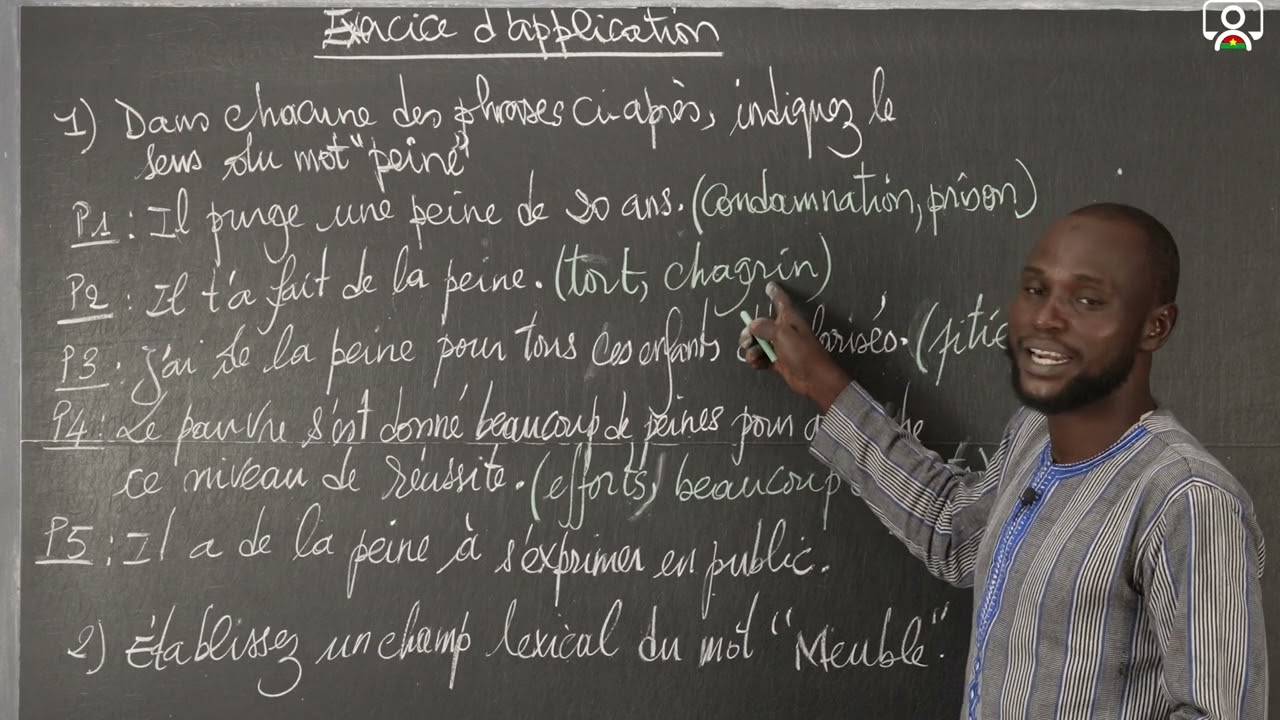 Exercice d'application
1) Dans chacune des phrases ci-après, indiquez le
sens du mot "peine"
P1 : Il purge une peine de 20 ans. (condamnation, prison)
P2 : Il t'a fait de la peine. (tort, chagrin)
P3 : J'ai de la peine pour tous ces enfants (pitié
P4 : Le pauvre s'est donné beaucoup de peines pour
ce niveau de réussite. (efforts, beaucoup
P5 : Il a de la peine à s'exprimer en public.
2) Établissez un champ lexical du mot "Meuble".